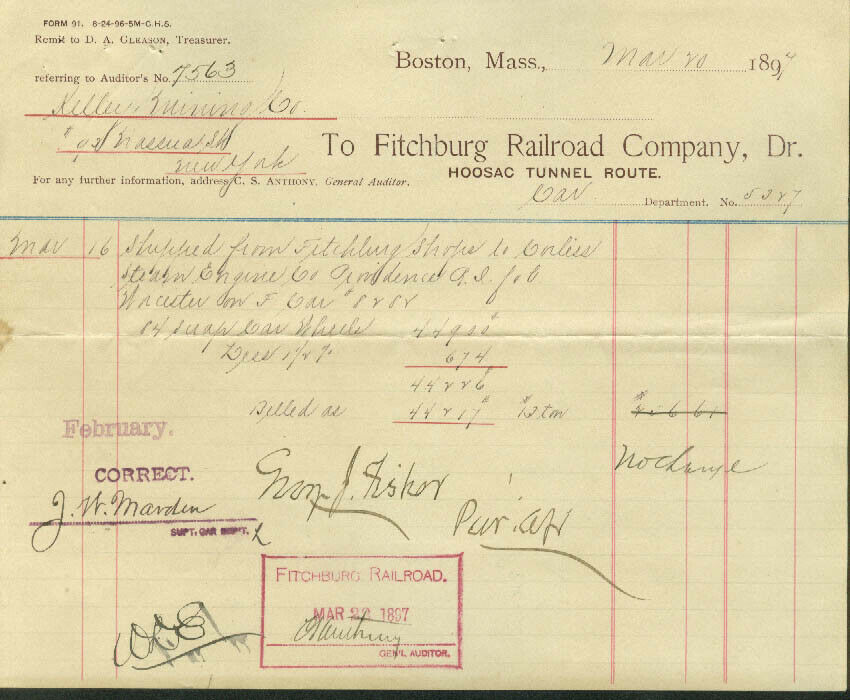 FORM 91. 8-24-96-5M-C.H.S.
Remit to D. A. GLEASON, Treasurer.
Boston, Mass., Mar 20 1897
referring to Auditor's No. 7563
Co.
Nassau St
New York
To Fitchburg Railroad Company, Dr.
HOOSAC TUNNEL ROUTE.
For any further information, address C. S. ANTHONY, General Auditor.
Car Department. No. 5327
Mar 16 Shipped from Fitchburg Shops to Corliss
Steam Engine Co Providence R.I. fob
Worcester on F Car #
84 Scrap Car Wheels 44900
Less 1 1/2 % 674
44226#
Billed as 44217#
February.
No charge
CORRECT.
Geo. J. Fisher
J. W. Marden
Pur. Agt
SUPT. CAR DEPT.
FITCHBURG RAILROAD.
MAR 22 1897
CSAnthony
GEN'L AUDITOR.